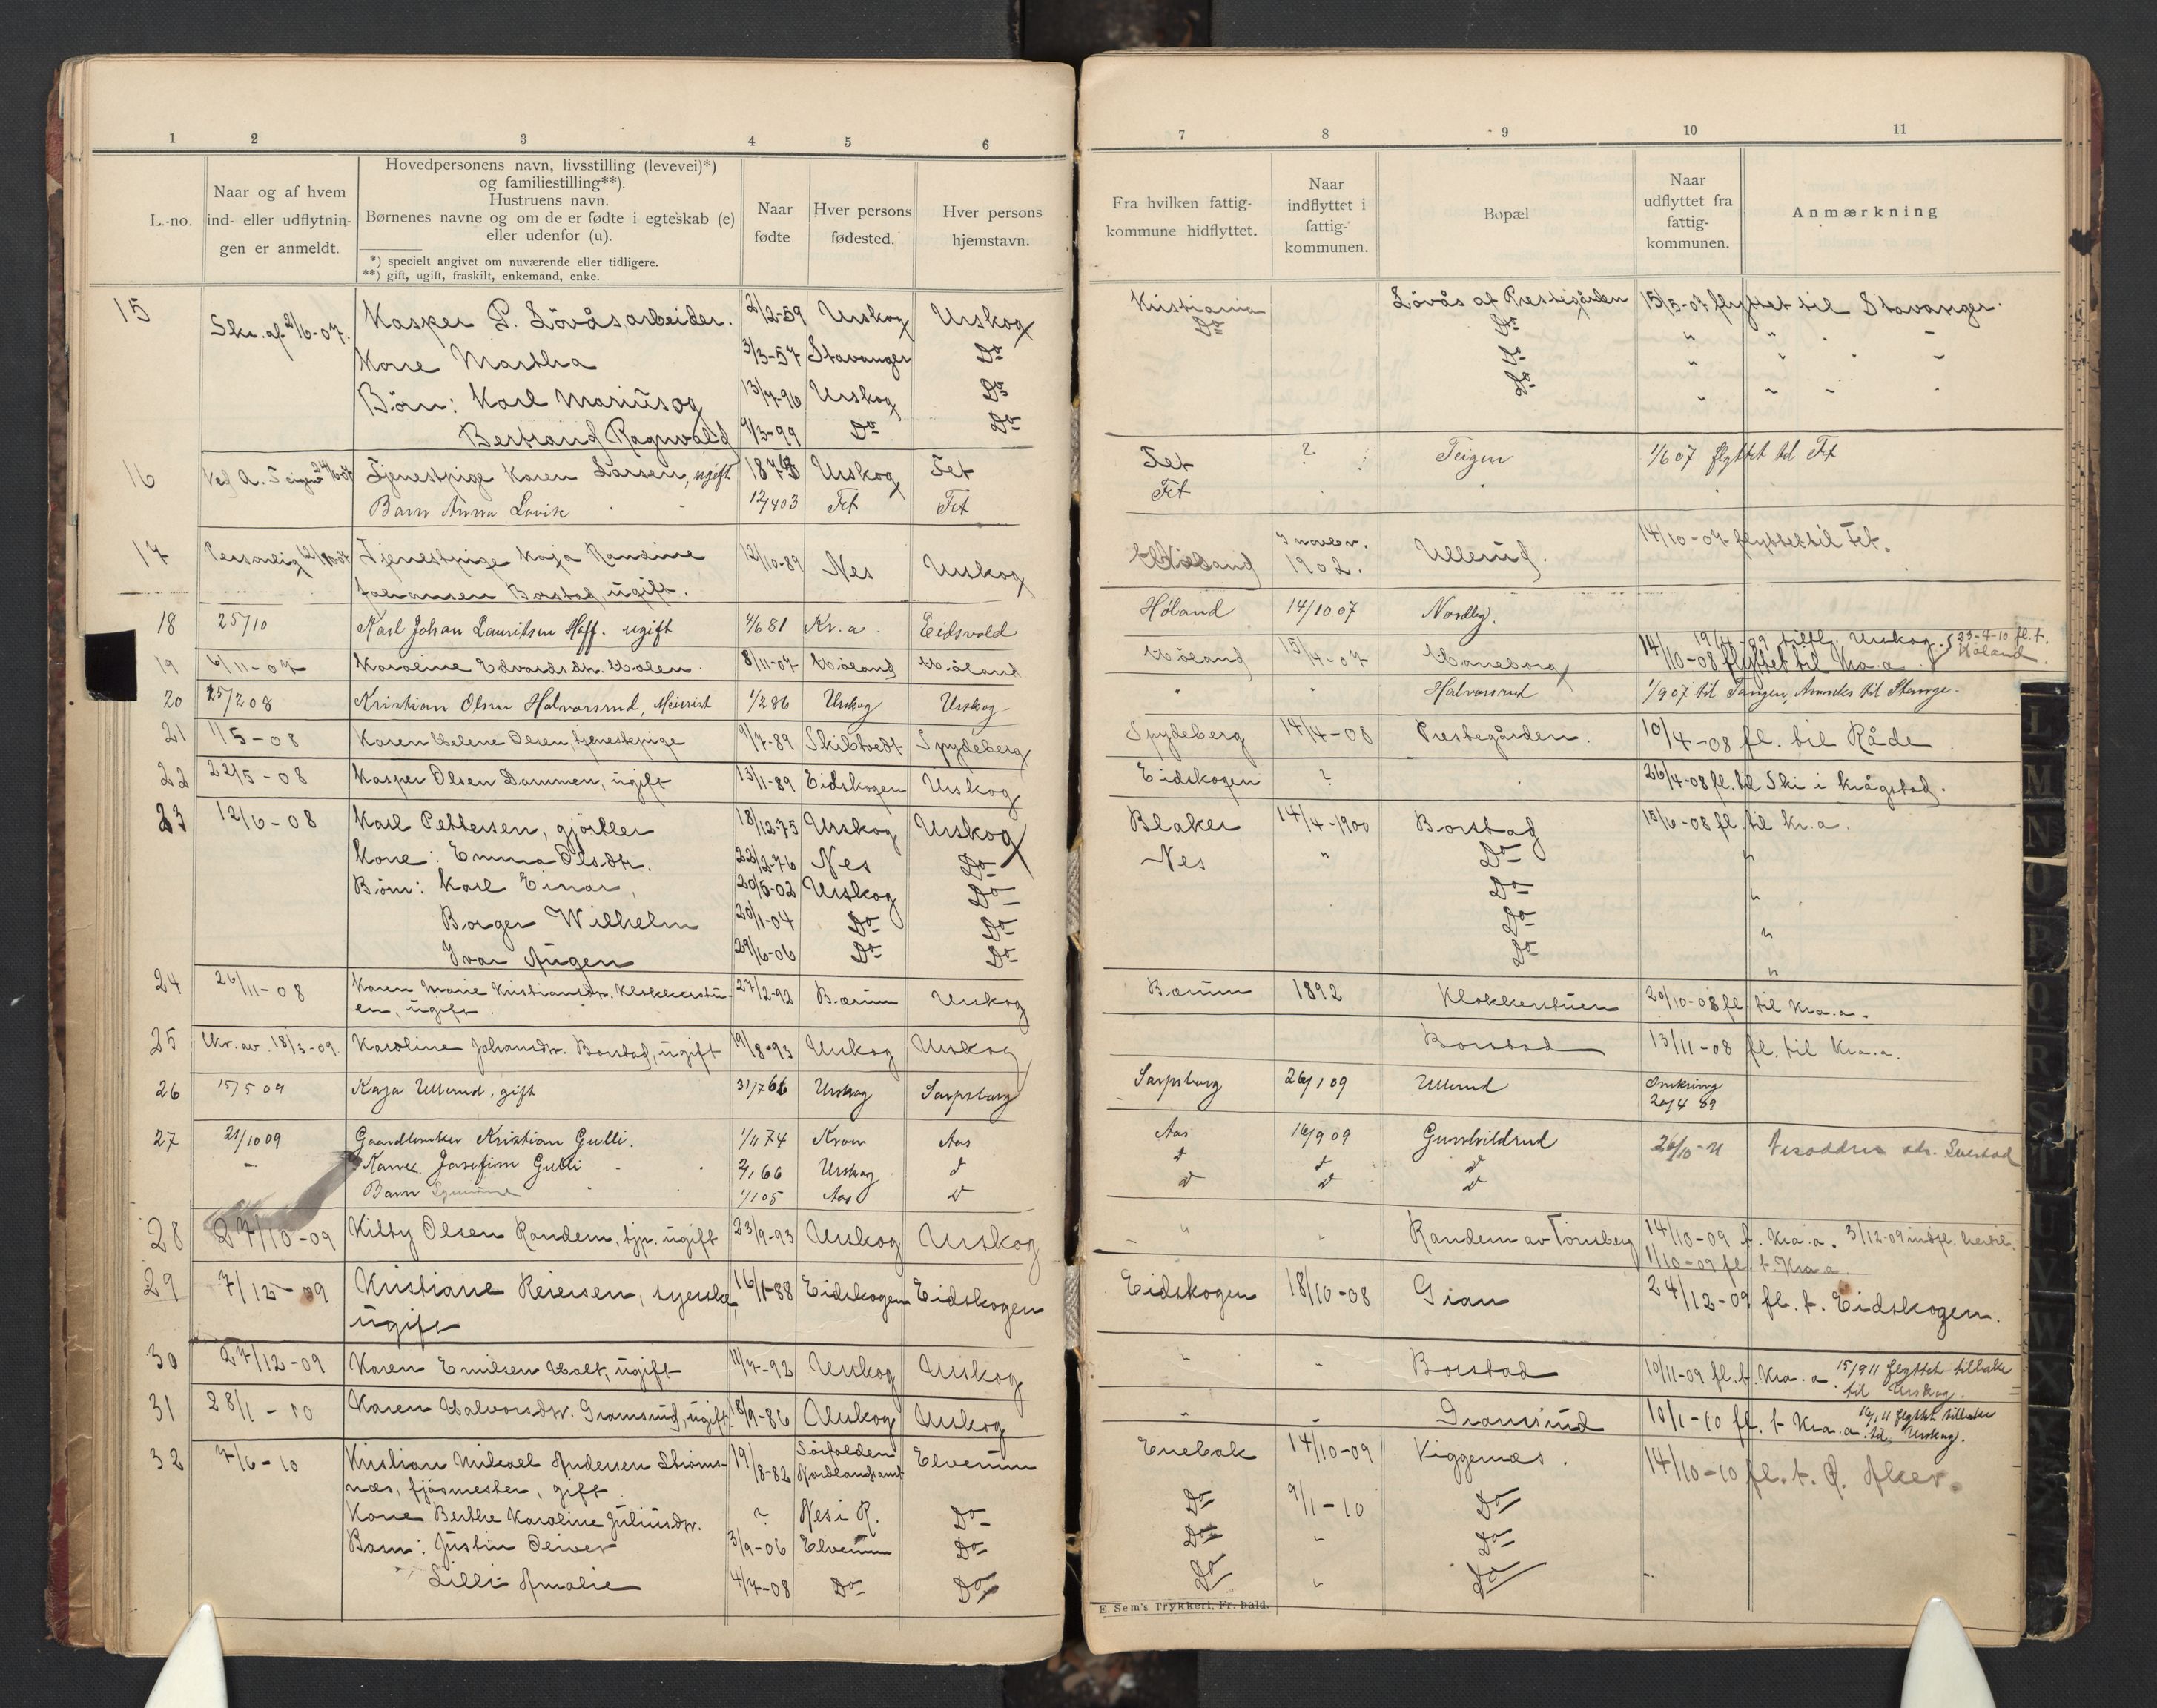 1 2 3 4 5 6
L.-no. Naar og af hvem ind- eller udflytnin- gen er anmeldt. Hovedpersonens navn, livsstilling (levevei)*) og familiestilling**). Hustruens navn. Børnenes navne og om de er fødte i egteskab (e) eller udenfor (u). Naar fødte. Hver persons fødested. Hver persons hjemstavn.
*) specielt angivet om nuværende eller tidligere.
**) gift, ugift, fraskilt, enkemand, enke.
15 Skr. af 2/6-07. Kasper P. Lövås, arbeider. 2/12-59 Urskog Urskog
Kone Martha 3/3-57 Stavanger Do
Börn: Karl Marius og 13/7-96 Urskog Do
Bertrand Ragnvald 9/3-99 Do Do
16 Ved A. Teigen Tjenestpige Karen Larsen, ugift Urskog Fet
Barn Anna Lovise 12/4 03 Fet Fet
17 Personlig Tjenestpige Kaja Randine 12/10-89 Nes Urskog
Johansen Borstad, ugift.
18 25/10 Karl Johan Lauritsen Hoff. ugift 4/6 81 Kr.a. Eidsvold
19 6/11-07 Karoline Edvardsdtr. Holen. 8/11-07 Höland Höland
20 25/2 08 Kristian Olsen Halvorsrud, Meierist 1/2 86 Urskog Urskog
21 1/5-08 Karen Helene Olsen, tjenestepige 9/7-89 Skibtvedt Spydeberg
22 22/5-08 Kasper Olsen Dammen, ugift 13/11-89 Eidskogen Urskog
23 12/6-08 Karl Pettersen, gjörtler 18/12-75 Urskog Urskog
Kone: Emma Olsdtr. 22/2-76 Nes Do
Börn: Karl Einar, 20/5-02 Urskog Do
Borger Wilhelm 20/1-04 Do Do
Ivar Augen 29/6-06 Do Do
24 26/11-08 Karen Marie Kristiansdtr. Klokkerstu- 27/2-92 Bærum Urskog
en, ugift.
25 Skr. av 18/3-09. Karoline Johansdtr. Borstad, ugift 19/8-93 Urskog Urskog
26 15/5 09 Kaja Ullerud, gift 31/7 66 Urskog Sarpsborg
27 21/10 09 Gaardbruker Kristian Gulli. 1/11 74 Kroer Aas
Kone Josefine Gulli 2/1 66 Urskog d
Barn 1/1 05 Aas d
28 27/10-09 Kitty Olsen Randem, tjp. ugift 23/9-93 Urskog Urskog
29 7/12-09 Kristiane Reiersen, syerske, 16/1-88 Eidskogen Eidskogen
ugift
30 27/12-09 Karen Emilsen Holt, ugift 11/7-92 Urskog Urskog
31 28/1-10 Karen Halvorsdtr. Gramsund, ugift 8/9-86 Urskog Urskog
32 7/6-10 Kristian Mikael Andersen Ströms- 19/8-82 Sörfolden Nordlandsamt Elverum
næs, fjösmester, gift
Kone Berthe Karoline Juliusdtr. ? Nes i R. Do
Barn: Justin Oliver 3/9-06 Elverum Do
Lilli Amalie 4/7-08 Do Do
7 8 9 10 11
Fra hvilken fattig- kommune hidflyttet. Naar indflyttet i fattig- kommunen. Bopæl Naar udflyttet fra fattig- kommunen. Anmærkning
Kristiania Lövås af Prestegården 15/5-07 flyttet til Stavanger.
Do Do " " " "
Do " " " "
Do " " " "
Fet ? Teigen 1/6 07 flyttet til Fet
Fet
Höland I novbr. 1902. Ullerud. 14/10-07 flyttet til Fet.
Høland 14/10 07 Nordby.
Höland 15/4-07 Haneborg 14/10-08 flyttet til Kra.a 19/4-09 tilfl. Urskog. 23-4-10 fl. t. Höland
" " Halvorsrud 1/9 07 til Tangen, Anneks til Stange.
Spydeberg 14/4-08 Prestegården. 10/4-08 fl. til Råde.
Eidskogen ? 26/4-08 fl. til Ski i Krågstad.
Blaker 14/4-1900 Borstad 15/6-08 fl. til Kr.a.
Nes " Do "
Do "
Do "
Do "
Bærum 1892 Klokkerstuen 20/10-08 fl. til Kra.a.
Borstad 13/11-08 fl. til Kra.a.
Sarpsborg 26/1 09 Ullerud Omkring 20/4 89
Aas 16/9 09 Gunhildrud 26/10-11 Nesodden
d d d
d d d
" " Randem av Tönsberg 14/10-09 f. Kra.a. 3/12-09 indfl. hertil.
1/10-09 fl. t. Kra a.
Eidskogen 18/10-08 Gran 24/12-09 fl. t. Eidskogen.
" " Borstad 10/11-09 fl. t. Kra.a. 15/9 11 flyttet tilbake til Urskog.
" " Gramsund 10/1-10 fl. t. Kra.a. 16/1 11 flyttet tilbake til Urskog.
Enebak 14/10-09 Kiggernæs. 14/10-10 fl. t. Ø. Aker.
Do 9/1-10 Do
Do " Do
Do " Do
E. Sem's Trykkeri, Fr.hald.
I
M
N
O
P
Q
R
S
U
V
W
X